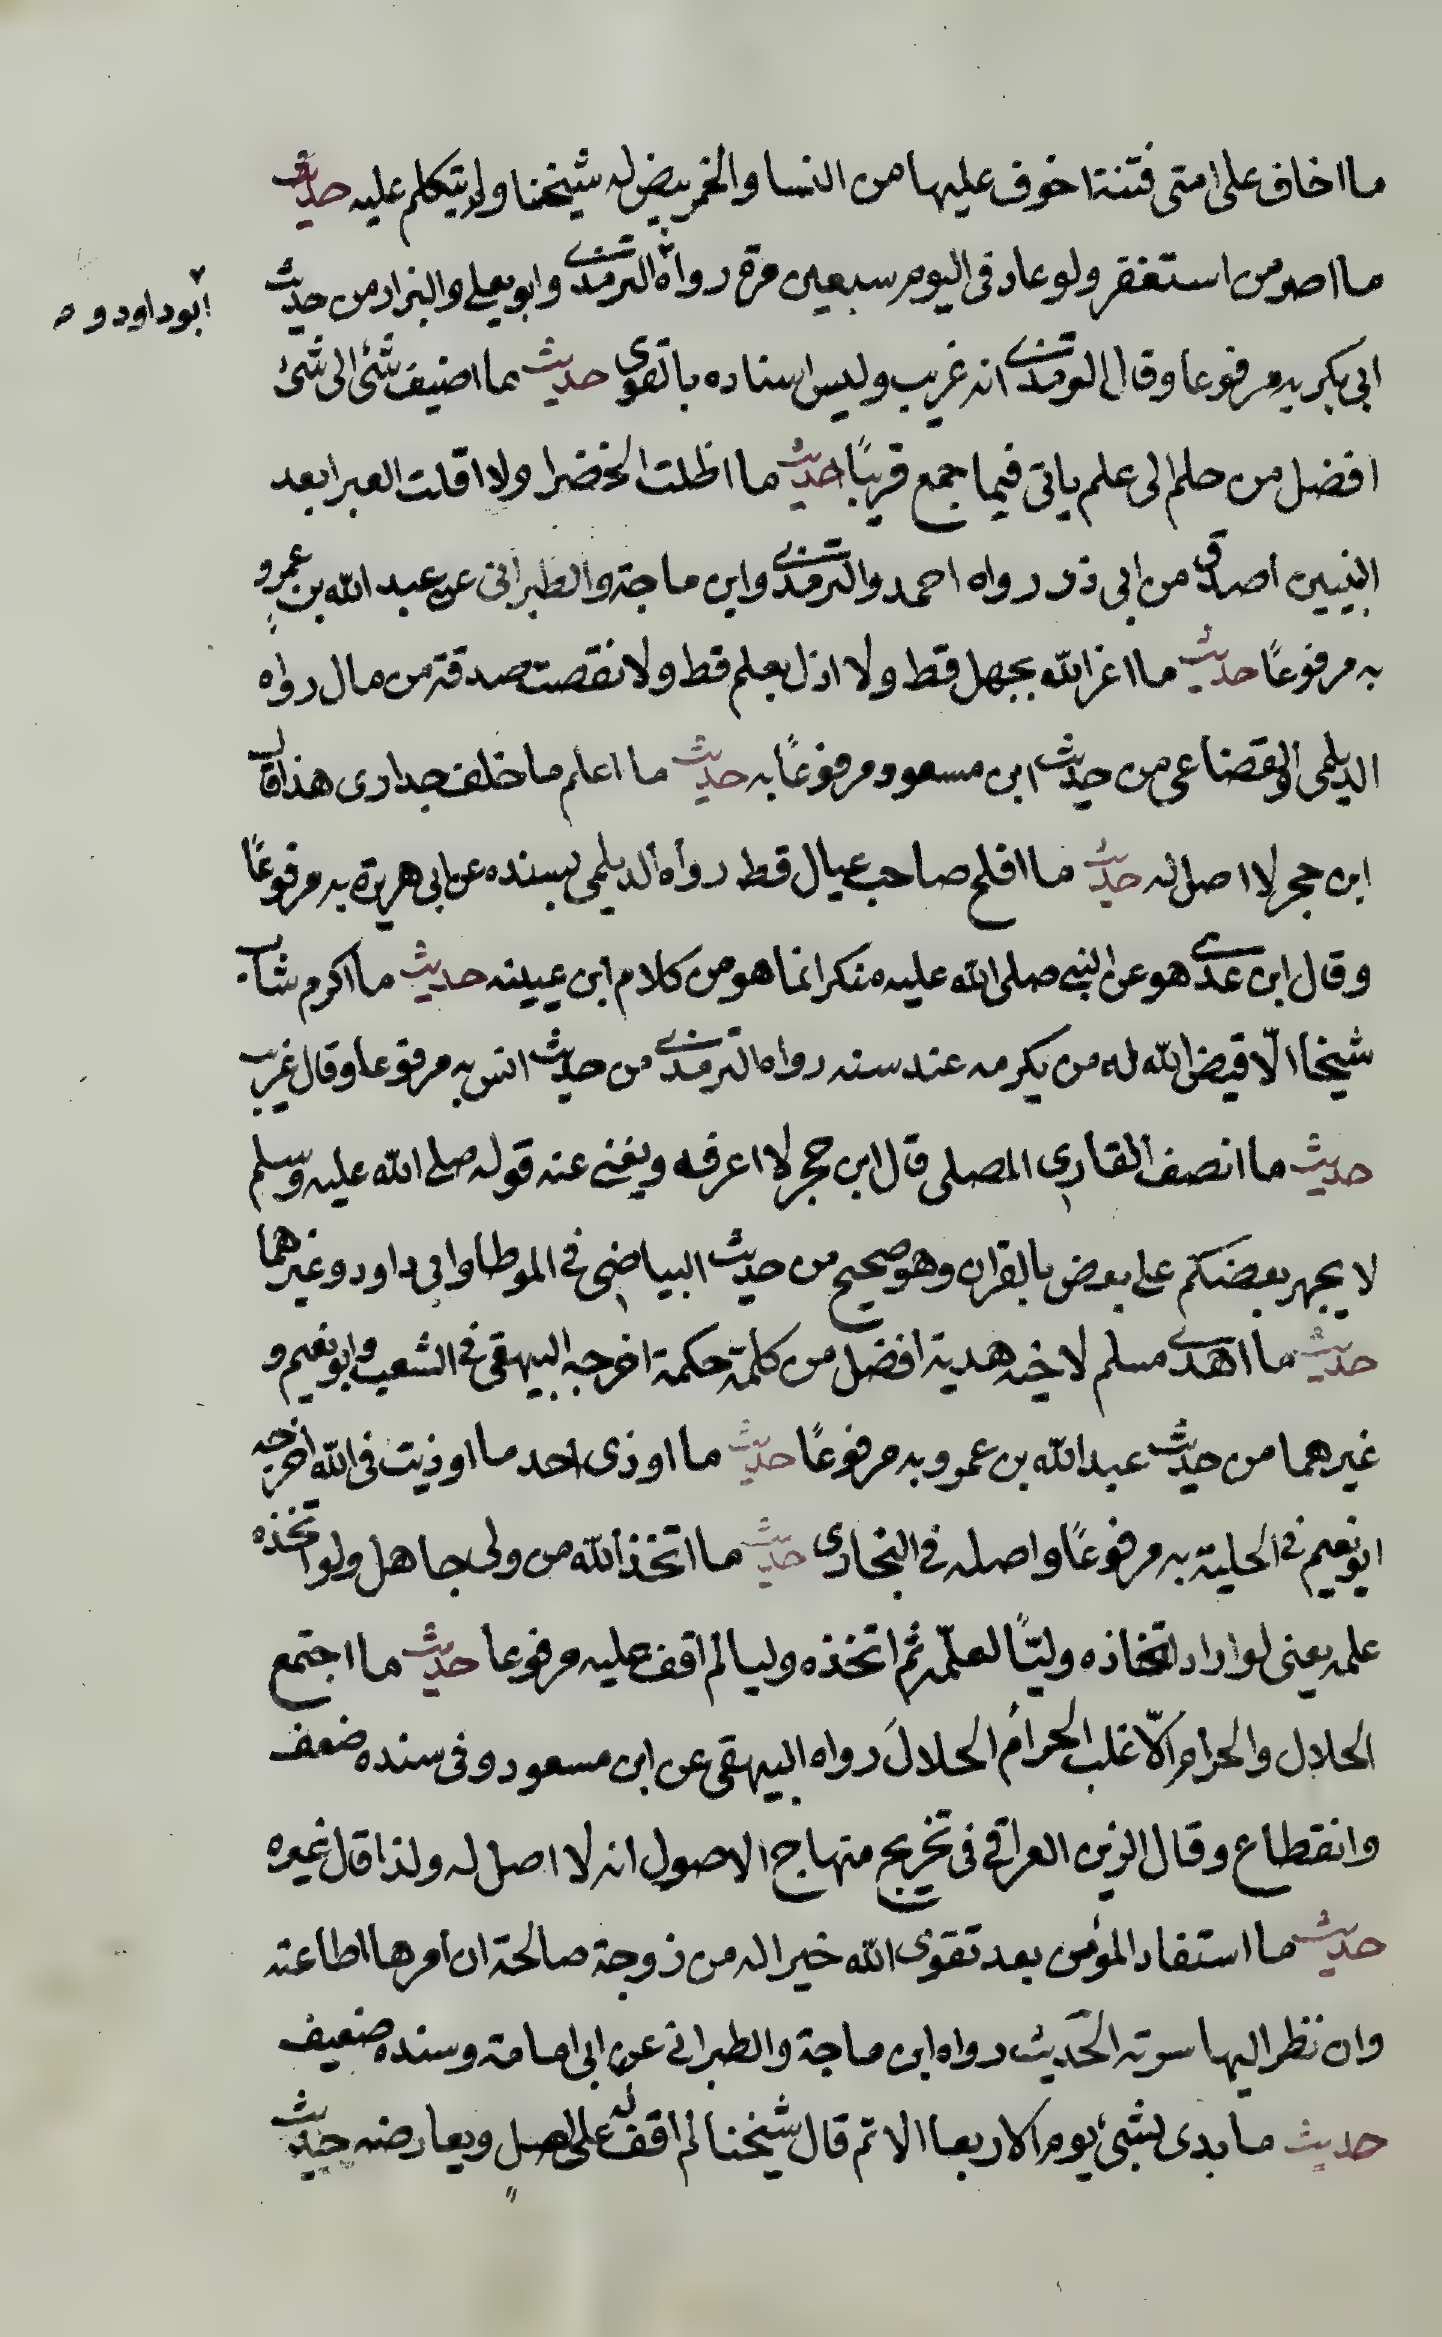 ما اخاف على امتى فتنة اخوف عليها من النسا والخمر بيض له شيخنا ولم يتكلم عليه حديث
ما اصر من استغفر ولو عاد فى اليوم سبعين مرة رواه الترمذى وابو يعلى والبزار من حديث
ابوداود و
ابى بكر به مرفوعا وقال الترمذى انه غريب وليس اسناده بالقوى حديث ما اضيف شئ الى شئ
افضل من حلم الى علم ياتى فيما جمع قريبًا حديث ما اظلت الخضرا ولا اقلت الغبرا بعد
النبيين اصدق من ابى ذر رواه احمد والترمذى وابن ماجة والطبرانى عن عبد الله بن عمرو
به مرفوعًا حديث ما اعز الله بجهل قط ولا اذل بعلم قط ولا نقصت صدقة من مال رواه
الديلمى والقضاعى من حديث ابن مسعود مرفوعًا به حديث ما اعلم ما خلف جدارى هذا قال
ابن حجر لا اصل له حديث ما افلح صاحب عيال قط رواه الديلمى بسنده عن ابى هريرة به مرفوعًا
وقال ابن عدى هو عن النبى صلى الله عليه منكر انما هو من كلام ابن عيينه حديث ما اكرم شاب
شيخا الّا قيض الله له من يكرمه عند سنه رواه الترمذى من حديث انس به مرفوعا وقال غريب
حديث ما انصف القارى المصلى قال ابن حجر لا اعرفه ويغنى عنه قوله صلى الله عليه وسلم
لا يجهر بعضكم على بعض بالقران وهو صحيح من حديث البياضى فى الموطا وابى داود وغيرهما
حديث ما اهدى مسلم لاخيه هدية افضل من كلمة حكمة اخرجه البيهقى فى الشعب وابو نعيم و
غيرهما من حديث عبد الله بن عمرو به مرفوعًا حديث ما اوذى احد ما اوذيت فى الله اخرجه
ابو نعيم فى الحلية به مرفوعًا واصله فى البخارى حديث ما اتخذ الله من ولى جاهل ولو اتخذه
علمه يعنى لو اراد اتخاذه وليًّا لعلّمه ثم اتخذه وليا لم اقف عليه مرفوعا حديث ما اجتمع
الحلال والحرام الّا غلب الحرامُ الحلالَ رواه البيهقى عن ابن مسعود وفى سنده ضعف
وانقطاع وقال الزين العراقى فى تخريج منهاج الاصول انه لا اصل له ولذا قال غيره
حديث ما استفاد المؤمن بعد تقوى الله خيرا له من زوجة صالحة ان امرها اطاعته
وان نظر اليها سرته الحديث رواه ابن ماجة والطبرانى عن ابى امامة وسنده ضعيف
حديث ما بدى بشئ يوم الاربعا الا تم قال شيخنا لم اقف له على اصل ويعارضه حديث